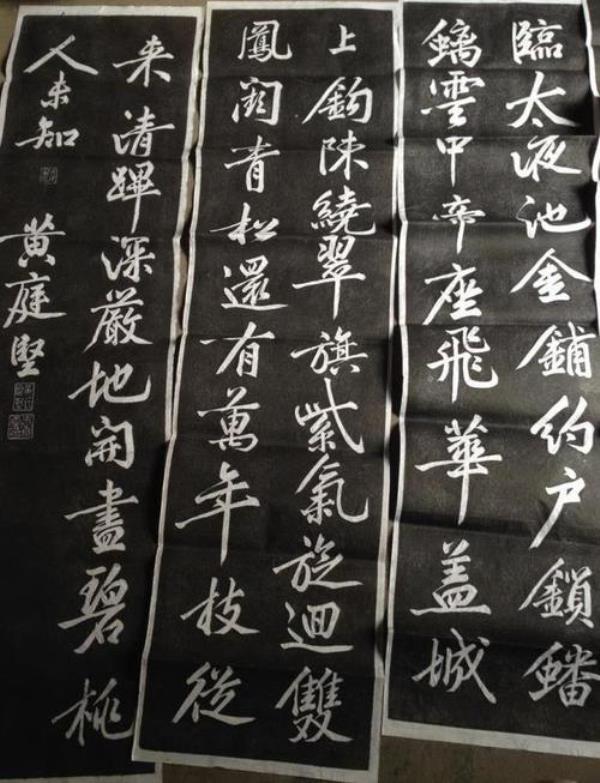 臨太液池金鋪約户鎖蟠
螭雲中帝座飛華盖城
上鈎陳繞翠旗紫氣旋迴雙
鳳闕青松還有萬年枝從
来清蹕深嚴地開盡碧桃
人未知
黄庭堅